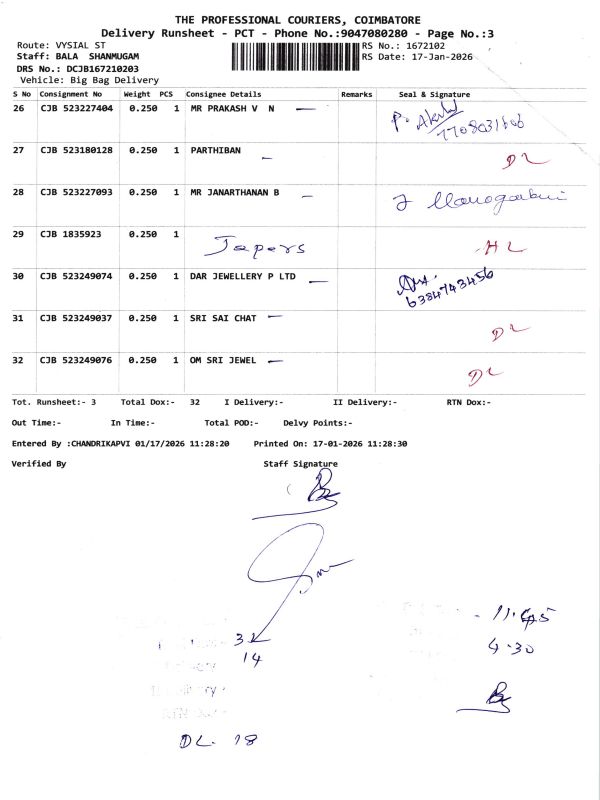 THE PROFESSIONAL COURIERS, COIMBATORE
Delivery Runsheet - PCT - Phone No.:9047080280 - Page No.:3
Route: VYSIAL ST RS No.: 1672102
Staff: BALA SHANMUGAM RS Date: 17-Jan-2026
DRS No.: DCJB167210203
Vehicle: Big Bag Delivery
S No Consignment No Weight PCS Consignee Details Remarks Seal & Signature
26 CJB 523227404 0.250 1 MR PRAKASH V N
27 CJB 523180128 0.250 1 PARTHIBAN DL
28 CJB 523227093 0.250 1 MR JANARTHANAN B
29 CJB 1835923 0.250 1 HL
30 CJB 523249074 0.250 1 DAR JEWELLERY P LTD
6384743456
31 CJB 523249037 0.250 1 SRI SAI CHAT DL
32 CJB 523249076 0.250 1 OM SRI JEWEL DL
Tot. Runsheet:- 3 Total Dox:- 32 I Delivery:- II Delivery:- RTN Dox:-
Out Time:- In Time:- Total POD:- Delvy Points:-
Entered By :CHANDRIKAPVI 01/17/2026 11:28:20 Printed On: 17-01-2026 11:28:30
Verified By Staff Signature
- 11.45
32
4.30
14
DL. 18